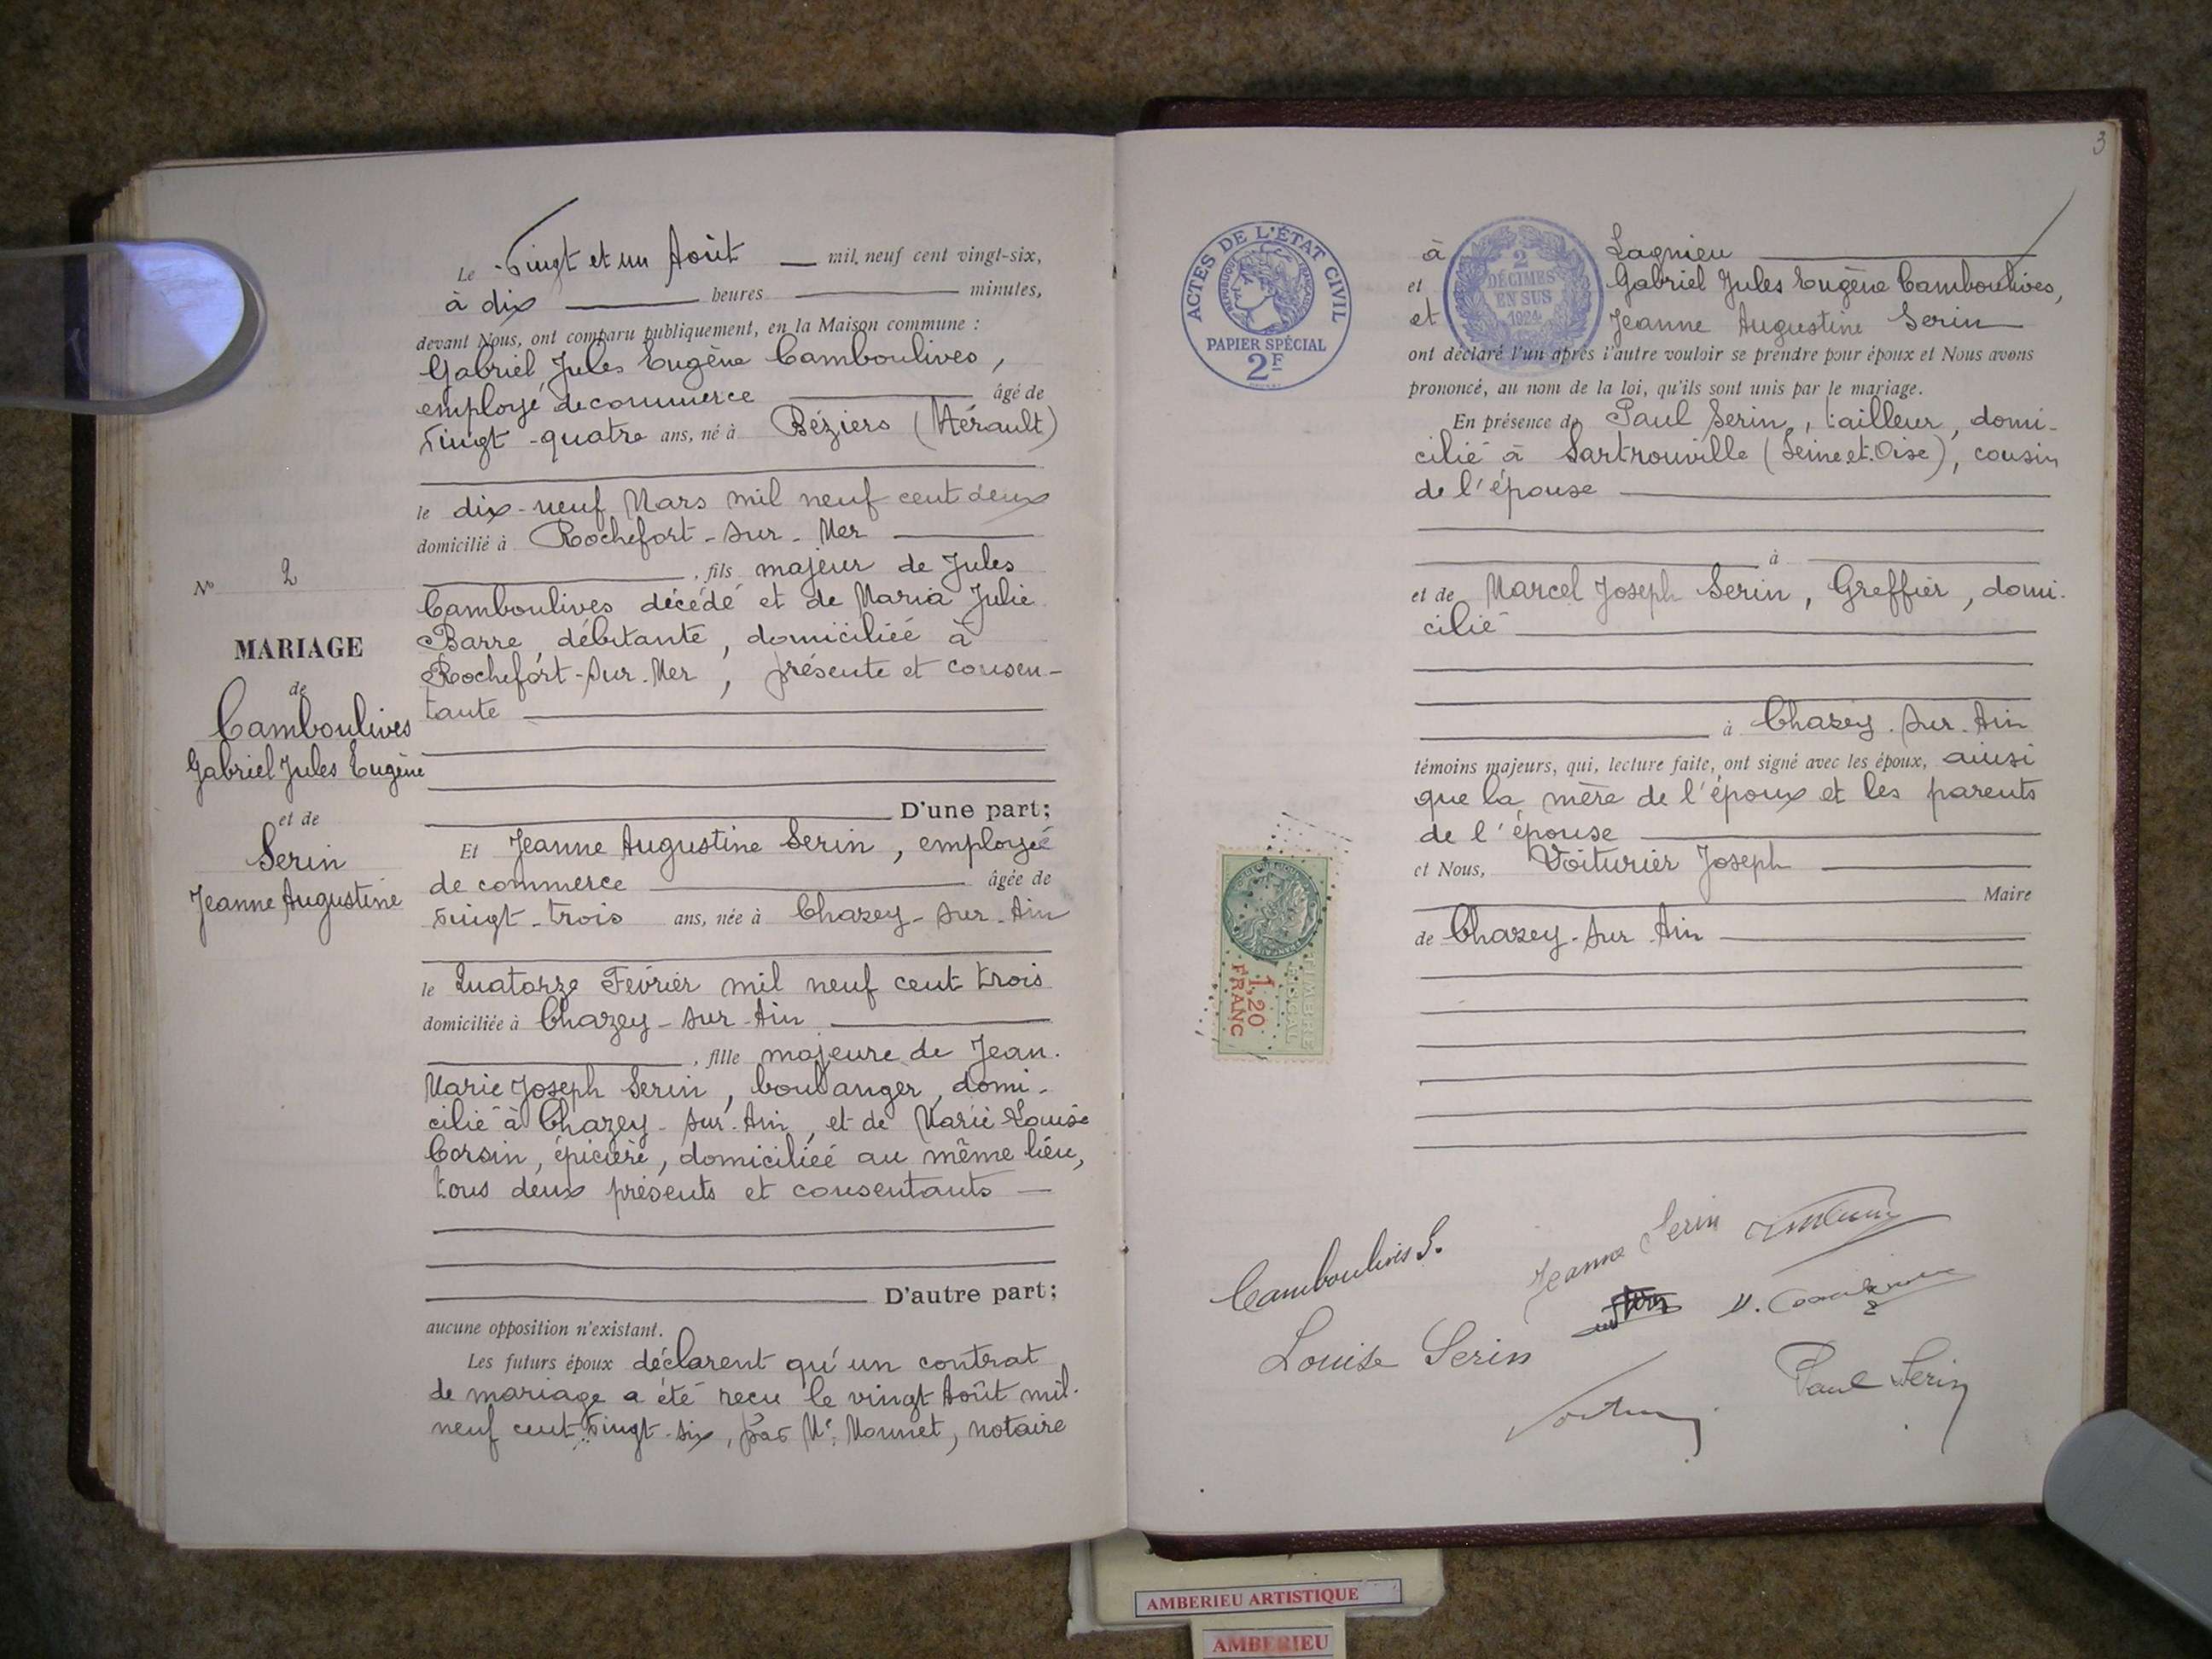 Le Vingt et un Août — mil neuf cent vingt-six,
à dix heures minutes,
devant Nous, ont comparu publiquement, en la Maison commune :
Gabriel Jules Eugène Camboulives,
employé de commerce âgé de
vingt-quatre ans, né à Béziers (Hérault)
le dix-neuf Mars mil neuf cent deux
domicilié à Rochefort-sur-Mer
, fils majeur de Jules
Camboulives décédé et de Maria Julie
Barre, débitante, domiciliée à
Rochefort-sur-Mer, présente et consen-
tante
D'une part;
Et Jeanne Augustine Serin, employée
de commerce âgée de
vingt-trois ans, née à Chazey-sur-Ain
le Quatorze Février mil neuf cent trois
domiciliée à Chazey-sur-Ain
, fille majeure de Jean-
Marie Joseph Serin, boulanger, domi-
cilié à Chazey-sur-Ain, et de Marie Louise
Corsin, épicière, domiciliée au même lieu,
tous deux présents et consentants —
D'autre part;
aucune opposition n'existant.
Les futurs époux déclarent qu'un contrat
de mariage a été recu le vingt Août mil-
neuf cent vingt-six, par Me Monnet, notaire
N° 2
MARIAGE
de
Camboulives
Gabriel Jules Eugène
et de
Serin
Jeanne Augustine
3
ACTES DE L'ÉTAT CIVIL
RÉPUBLIQUE FRANÇAISE
PAPIER SPÉCIAL
2F
2
DÉCIMES
EN SUS
1924
à Lagnieu
et Gabriel Jules Eugène Camboulives,
et Jeanne Augustine Serin
ont déclaré l'un après l'autre vouloir se prendre pour époux et Nous avons
prononcé, au nom de la loi, qu'ils sont unis par le mariage.
En présence de Paul Serin, tailleur, domi-
cilié à Sartrouville (Seine et Oise), cousin
de l'épouse
à
et de Marcel Joseph Serin, Greffier, domi-
cilié
à Chazey-sur-Ain
témoins majeurs, qui, lecture faite, ont signé avec les époux, ainsi
que la mère de l'époux et les parents
de l'épouse
et Nous, Voiturier Joseph
Maire
de Chazey-sur-Ain
TIMBRE
FISCAL
1,20
FRANC
Camboulives G.
Jeanne Serin
Louise Serin
Paul Serin
AMBERIEU ARTISTIQUE
AMBERIEU